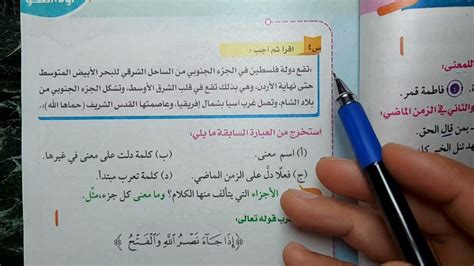 س١: اقرأ ثم أجب:
«تقع دولة فلسطين في الجزء الجنوبي من الساحل الشرقي للبحر الأبيض المتوسط
حتى نهاية الأردن، وهي بذلك تقع في قلب الشرق الأوسط، وتشكل الجزء الجنوبي من
بلاد الشام، وتصل غرب آسيا بشمال إفريقيا، وعاصمتها القدس الشريف (حماها الله)».
استخرج من العبارة السابقة ما يلي:
(أ) اسم معنى.
(ب) كلمة دلت على معنى في غيرها.
(ج) فعلًا دلَّ على الزمن الماضي.
(د) كلمة تعرب مبتدأ.
الأجزاء التي يتألف منها الكلام؟ وما معنى كل جزء، مثِّل.
رب قوله تعالى:
﴿ إِذَا جَاءَ نَصْرُ اللَّهِ وَالْفَتْحُ ﴾
للمعنى:
فاطمة قمر
والثاني في الزمن الماضي:
من قال الحق.